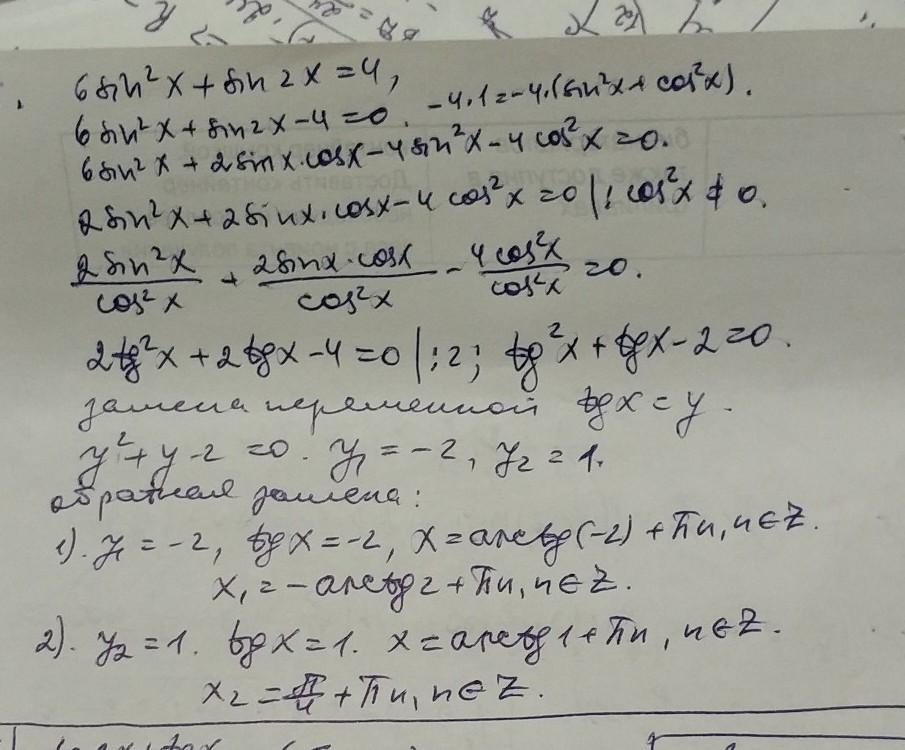 6 sin²x + sin 2x = 4,
6 sin²x + sin2x - 4 = 0. -4·1 = -4·(sin²x + cos²x).
6 sin²x + 2 sin x·cosx - 4 sin²x - 4 cos²x = 0.
2 sin²x + 2 sinx·cosx - 4 cos²x = 0 |: cos²x ≠ 0.
2 sin²x / cos²x + 2 sinx·cosx / cos²x - 4 cos²x / cos²x = 0.
2 tg²x + 2 tgx - 4 = 0 |:2; tg²x + tgx - 2 = 0.
замена переменной tgx = y.
y² + y - 2 = 0. y₁ = -2, y₂ = 1.
обратная замена:
1). y₁ = -2, tgx = -2, x = arctg(-2) + πn, n ∈ Z.
x₁ = - arctg2 + πn, n ∈ Z.
2). y₂ = 1. tgx = 1. x = arctg1 + πn, n ∈ Z.
x₂ = π/4 + πn, n ∈ Z.